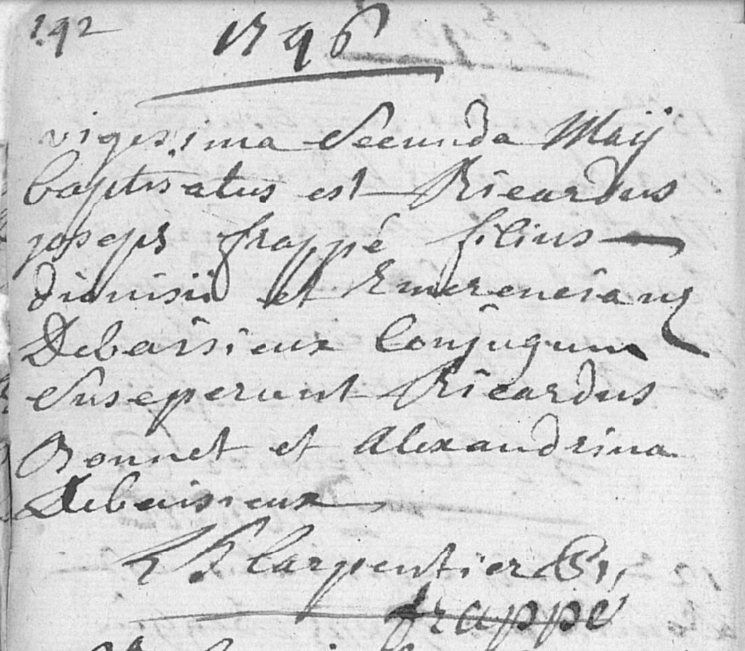 192
1796
vigesima Secunda Maij
baptisatus est Ricardus
joseph frappé filius
dionisii et Emerenciana
Debaisieux Conjugum
Susceperunt Ricardus
Bonnet et Alexandrina
Debaisieux
Carpentier
frappé